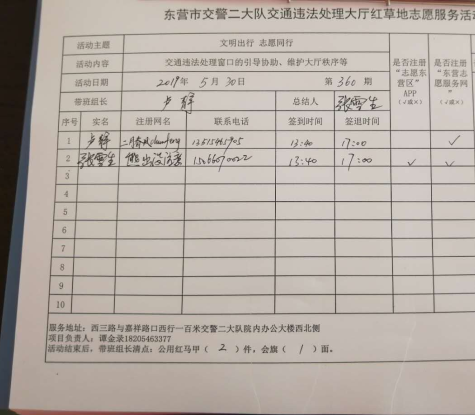 东营市交警二大队交通违法处理大厅红草地志愿服务活
活动主题 文明出行 志愿同行
活动内容 交通违法处理窗口的引导协助、维护大厅秩序等
是否注册“志愿东营区”APP（√或×）
是否注册“东营志愿服务网”（√或×）
活动日期 2019年 5月 30日 第 360 期
带班组长 卢静 总结人 张雪生
序号 实名 注册网名 联系电话 签到时间 签退时间
1 卢静 13:40 17:00 √
2 张雪生 熊出没 13:40 17:00 √ √
3
4
5
6
7
8
9
10
服务地址：西三路与嘉祥路口西行一百米交警二大队院内办公大楼西北侧
项目负责人：谭金录18205463377
活动结束后，带班组长清点：公用红马甲（ 2 ）件，会旗（ 1 ）面。